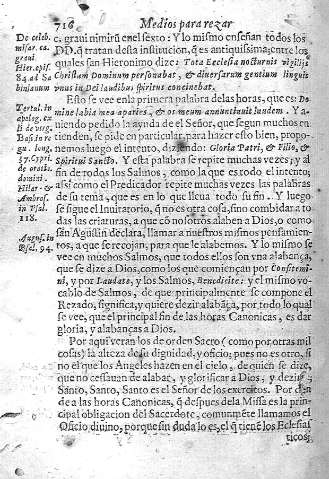 716 Medios para rezar
De celeb.
missar. ca.
graui.
Hier. epist.
84. ad Sa
binianum
Tertul. in
apolog. ex
li. de virg.
Basi. in re
gu. long.
37. Cypri.
de oratio.
domini.
Hilar. &
Ambros.
in Psal.
118.
August. in
Psal. 94.
c. graui nimirũ en el sexto: Y lo mismo enseñan todos los
DD. q̃ tratan desta institucion, q̃ es antiquissima; entre los
quales san Hieronimo dize: Tota Ecclesia nocturnis vigilijs
Christum Dominum personabat, & diuersarum gentium linguis
vnus in Dei laudibus spiritus concinebat.
Esto se vee en la primera palabra de las horas, que es: Do
mine labia mea aperies, & os meum annuntiauit laudem. Y a-
uiendo pedido la ayuda de el Señor, que segun muchos en
tienden, se pide en particular, para hazer esto bien, propo-
nemos luego el intento, diziendo: Gloria Patri, & Filio, &
Spiritui Sancto. Y esta palabra se repite muchas vezes; y al
fin de todos los Salmos, como la que es todo el intento;
assi como el Predicador repite muchas vezes las palabras
de su tema, que es en lo que lleua todo su fin. Y luego
se sigue el Inuitatorio, q̃ no es otra cosa, sino combidar a to
das las criaturas, a que cõ nosotros alaben a Dios, o como
san Agustin declara, llamar a nuestros mismos pensamien-
tos, a que se recojan, para que le alabemos. Y lo mismo se
vee en muchos Salmos, que todos ellos son vna alabança,
que se dize a Dios, como los que comiençan por Confitemi-
ni, y por Laudate, y los Salmos, Benedicite: y el mismo vo-
cablo de Salmos, de que principalmente se compone el
Rezado, significa, y quiere dezir alabãça, por todo lo qual
se vee, que el principal fin de las horas Canonicas, es dar
gloria, y alabanças a Dios.
Por aqui veran los de orden Sacro (como por otras mil
cosas) la alteza de su dignidad, y oficio; pues no es otro, si
no el que los Angeles hazen en el cielo, de quien se dize,
que no cessauan de alabar, y glorificar a Dios, y dezir:
Santo, Santo, Santo es el Señor de los exercitos. Por don
de a las horas Canonicas, q̃ despues de la Missa es la prin-
cipal obligacion del Sacerdote, comunmẽte llamamos el
Oficio diuino, porque sin duda lo es, el q̃ tienẽ los Eclesias
ticos,